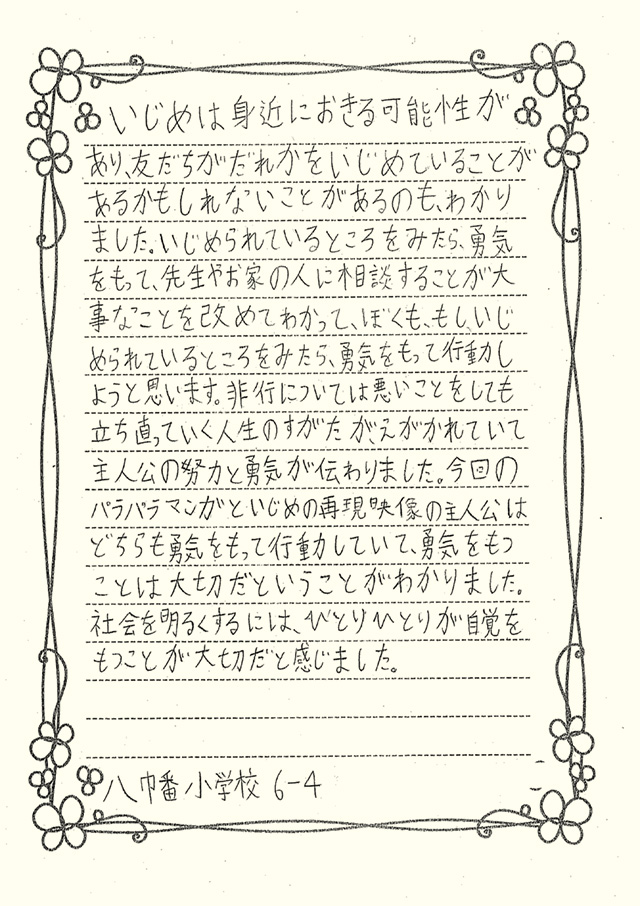 いじめは身近におきる可能性が
あり、友だちがだれかをいじめていることが
あるかもしれないことがあるのも、わかり
ました。いじめられているところをみたら、勇気
をもって、先生やお家の人に相談することが大
事なことを改めてわかって、ぼくも、もし、いじ
められているところをみたら、勇気をもって行動し
ようと思います。非行については悪いことをしても
立ち直っていく人生のすがたが、えがかれていて
主人公の努力と勇気が伝わりました。今回の
パラパラマンガといじめの再現映像の主人公は
どちらも勇気をもって行動していて、勇気をもつ
ことは大切だということがわかりました。
社会を明るくするには、ひとりひとりが自覚を
もつことが大切だと感じました。
八幡小学校 6-4